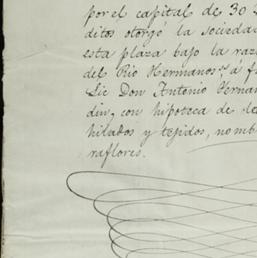 por el capital de 30
ditos otorgó la socieda
esta plaza bajo la raz
del Rio Hermanos á f
Lic Don Antonio Hernan
din, con hipoteca de
hilados y tejidos, nomb
raflores.